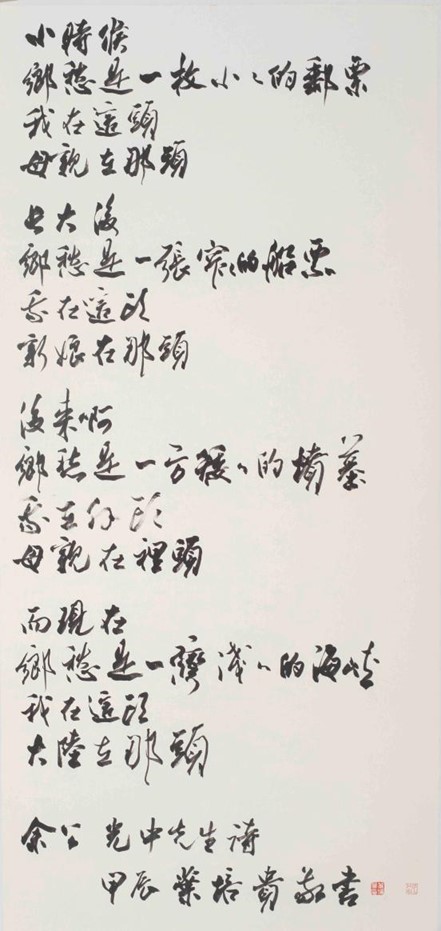 小時候
鄉愁是一枚小〻的郵票
我在這頭
母親在那頭
長大後
鄉愁是一張窄〻的船票
我在這頭
新娘在那頭
後來啊
鄉愁是一方矮〻的墳墓
我在外頭
母親在裡頭
而現在
鄉愁是一灣淺〻的海峽
我在這頭
大陸在那頭
余公 光中先生詩
甲辰 葉培貴敬書